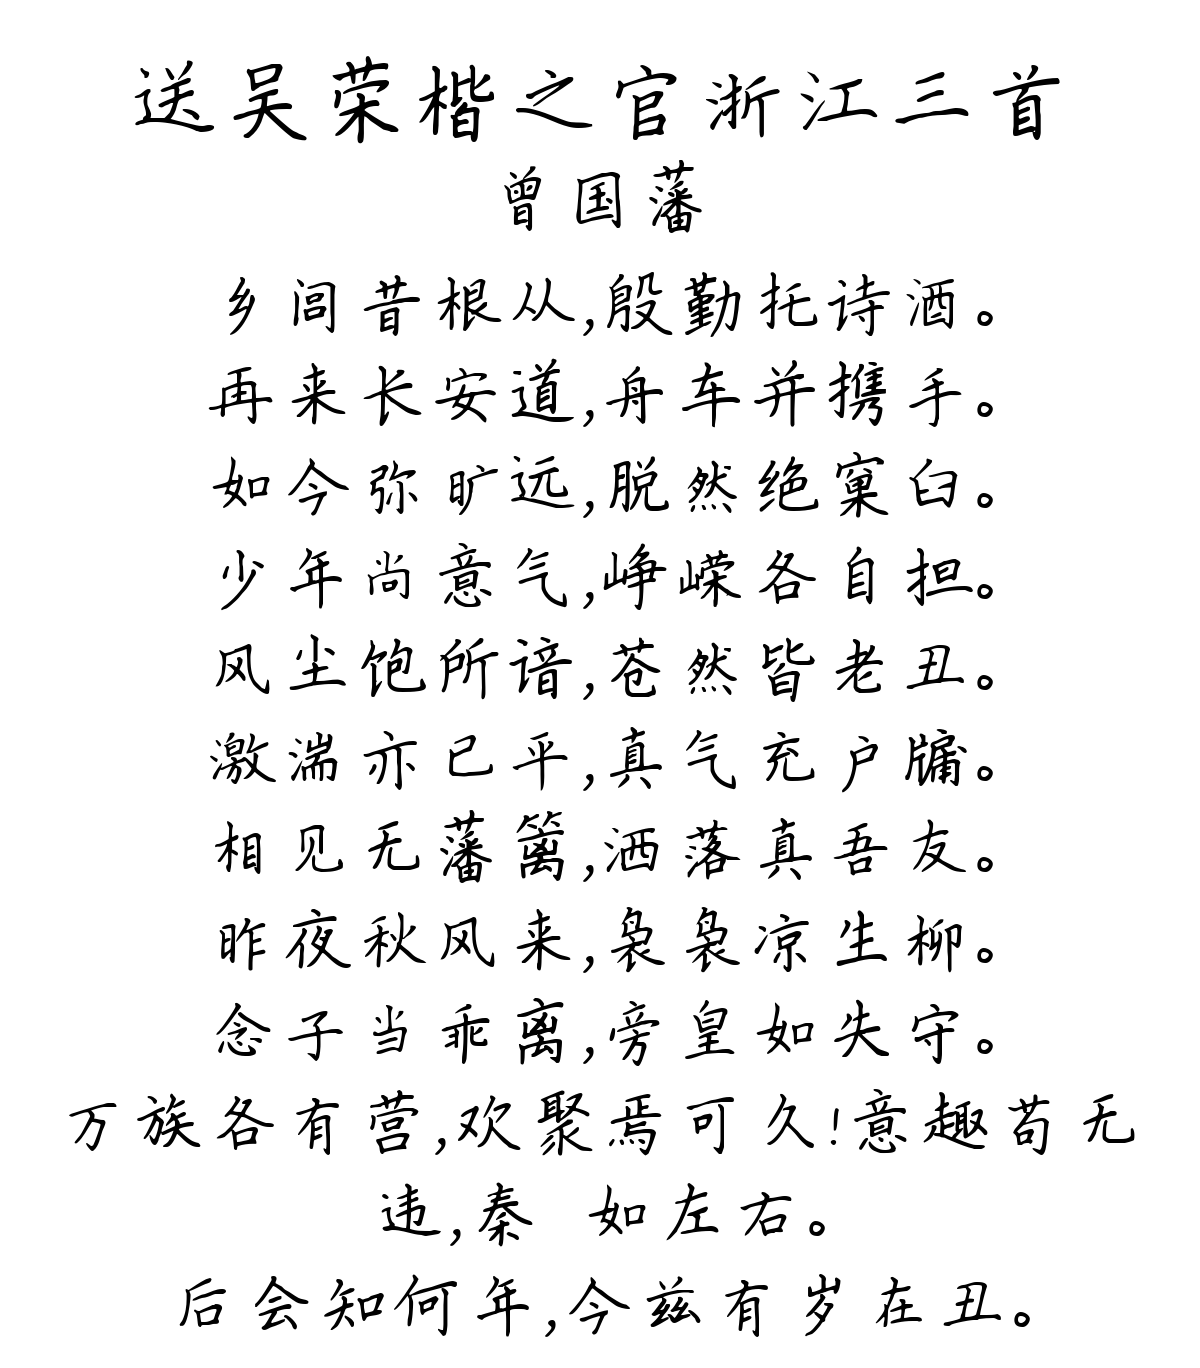 送吴荣楷之官浙江三首
曾国藩
乡闾昔根从,殷勤托诗酒。
再来长安道,舟车并携手。
如今弥旷远,脱然绝窠臼。
少年尚意气,峥嵘各自担。
风尘饱所谙,苍然皆老丑。
激湍亦已平,真气充户牖。
相见无藩篱,洒落真吾友。
昨夜秋风来,袅袅凉生柳。
念子当乖离,旁皇如失守。
万族各有营,欢聚焉可久!意趣苟无
违,秦 如左右。
后会知何年,今兹有岁在丑。